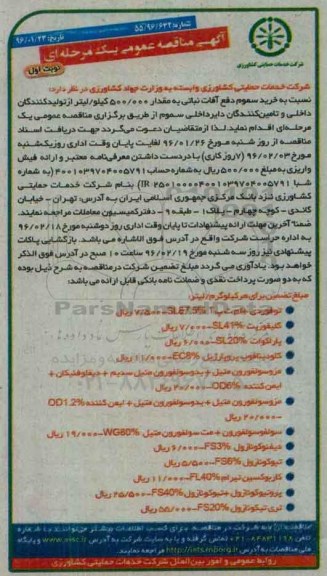 شماره: ۵۵/۹۶/۶۳۲
تاریخ: ۹۶/۰۱/۲۳
آگهی مناقصه عمومی یک مرحله‌ای
نوبت اول
شرکت خدمات حمایتی کشاورزی
شرکت خدمات حمایتی کشاورزی وابسته به وزارت جهاد کشاورزی در نظر دارد:
نسبت به خرید سموم دفع آفات نباتی به مقدار ۵۰۰/۰۰۰ کیلو/لیتر از تولیدکنندگان
داخلی و تامین‌کنندگان دارای دفتر داخلی سموم از طریق برگزاری مناقصه عمومی یک
مرحله‌ای اقدام نماید. لذا از متقاضیان دعوت می‌گردد جهت دریافت اسناد
مناقصه از روز شنبه مورخ ۹۶/۰۱/۲۶ لغایت پایان وقت اداری روز یکشنبه
مورخ ۹۶/۰۲/۰۳ (۷ روز کاری) با در دست داشتن معرفی‌نامه معتبر و ارائه فیش
واریزی به مبلغ ۵۰۰/۰۰۰ ریال به شماره حساب
بنام شرکت خدمات حمایتی
کشاورزی نزد بانک مرکزی جمهوری اسلامی ایران به آدرس: تهران - خیابان
گاندی - کوچه چهارم - پلاک ۱ - طبقه ۹ - دفتر کمیسیون معاملات مراجعه نمایند.
ضمناً آخرین مهلت ارائه پیشنهادات تا پایان وقت اداری روز دوشنبه مورخ ۹۶/۰۲/۱۸
به اداره حراست شرکت واقع در آدرس فوق الاشاره می باشد. بازگشایی پاکات
پیشنهادی نیز روز سه شنبه مورخ ۹۶/۰۲/۱۹ ساعت ۱۰ صبح در آدرس فوق الذکر
خواهد بود. یادآوری می گردد مبلغ تضمین شرکت در مناقصه به شرح ذیل بوده
که به دو صورت پرداخت نقدی و ضمانت نامه بانکی قابل ارائه می باشد:
مبلغ تضمین برای هر کیلوگرم/لیتر:
گلیفوزیت SL41% -۷/۰۰۰ ریال
پاراکوات SL20% -۶/۰۰۰ ریال
کلودینافوپ پروپارژیل EC8% -۱۱/۰۰۰ ریال
مزوسولفورون متیل + یدوسولفورون متیل سدیم + دیفلوفنیکان +
ایمن کننده OD6% -۲۰/۰۰۰ ریال
مزوسولفورون متیل + یدوسولفورون متیل + ایمن کننده OD1.2%
-۲۰/۰۰۰ ریال
سولفوسولفورون + مت سولفورون متیل WG80% -۱۹/۰۰۰ ریال
دیفنوکونازول FS3% -۶/۰۰۰ ریال
تبوکونازول FS6% -۵/۵۰۰ ریال
کاربوکسین تیرام FL40% -۱۱/۰۰۰ ریال
پروتیوکونازول + تبوکونازول FS40% -۲۵/۵۰۰ ریال
تری تیکونازول FS20% -۵۵/۰۰۰ ریال
روابط عمومی و امور بین‌الملل شرکت خدمات حمایتی کشاورزی